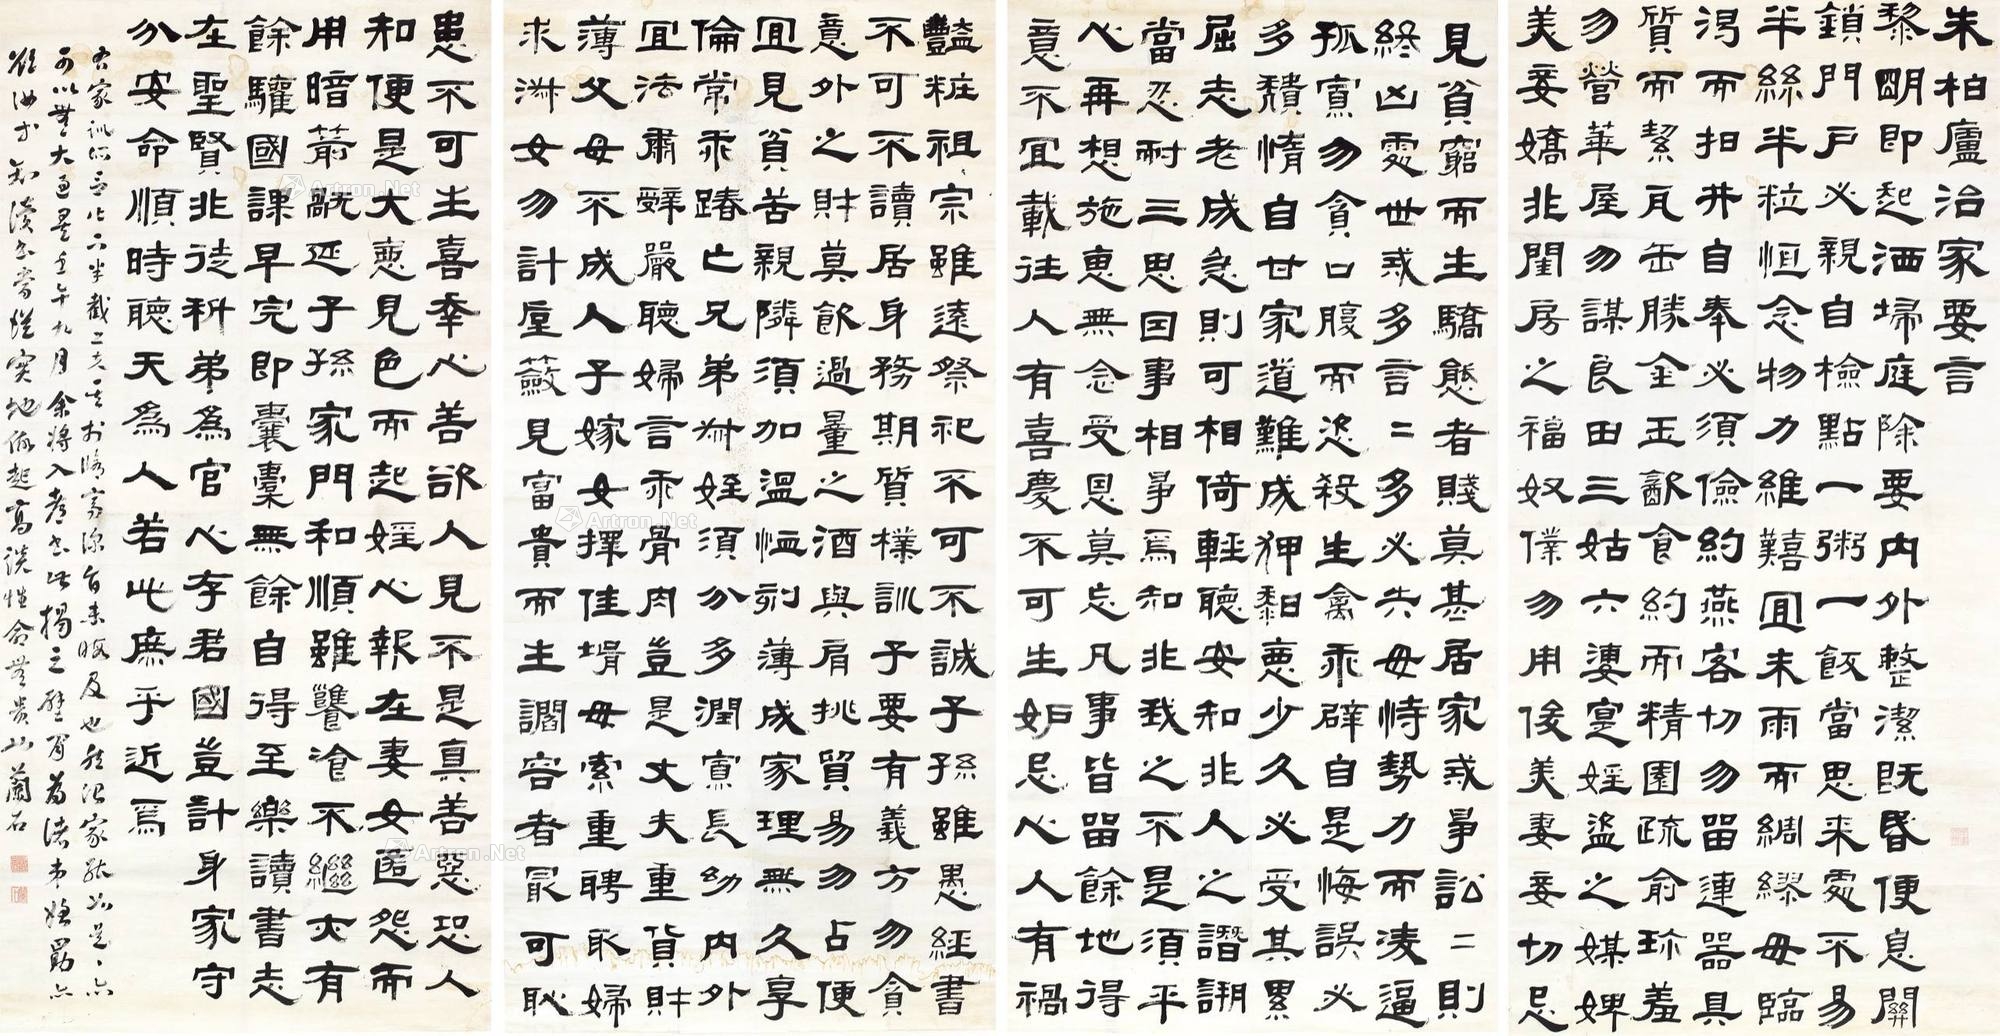 朱柏廬治家要言
黎明即起洒埽庭除要内外整潔既昏便息關
鎖門戶必親自檢點一粥一飯當思来處不易
半絲半粒恒念物力維囏宜未雨而綢繆毋臨
渴而掘井自奉必須儉約燕客切勿畱連器具
質而絜瓦缶勝金玉飲食約而精園疏俞珎羞
勿營華屋勿謀良田三姑六婆寔婬盜之媒婢
美妾嬌非閨房之福奴僕勿用俊美妻妾切忌
豔粧祖宗雖遠祭祀不可不誠子孫雖愚經書
不可不讀居身務期質樸訓子要有義方勿貪
意外之財莫飲過量之酒與肩挑貿易勿占便
宜見貧苦親隣須加溫恤刻薄成家理無久享
倫常乖踳亡兄弟叔姪須分多潤寡長幼内外
宜法肅辤嚴聽婦言乖骨肉豈是丈夫重貨財
薄父母不成人子嫁女擇佳壻毋索重聘取婦
求淑女勿計厚籢見富貴而生讇容者最可恥
見貧窮而生驕態者賤莫甚居家戒爭訟二則
終凶處世戒多言二多必失毋恃勢力而淩逼
孤寡勿貪口腹而恣殺生禽乖辟自是悔誤必
多穨惰自甘家道難成狎䵒惡少久必受其累
屈志老成急則可相倚輕聽安知非人之譖訴
當忍耐三思因事相爭焉知非我之不是須平
心再想施惠無念受恩莫忘凡事皆畱餘地得
意不宜載往人有喜慶不可生妒忌心人有禍
患不可生喜幸心善欲人見不是真善惡恐人
知便是大惡見色而起婬心報在妻女匿怨而
用暗箭既延子孫家門和順雖饔飧不繼亦有
餘驩國課早完即囊橐無餘自得至樂讀書志
在聖賢非徒科弟為官心存君國豈計身家守
分安命順時聽天為人若此庶乎近焉
右家訓所言 也 治家能如是亦
可以無大過 壬午九月余將入 書此揭之壁 為諸弟 勗亦
知讀書當從實地做起高談性命無 山蘭石